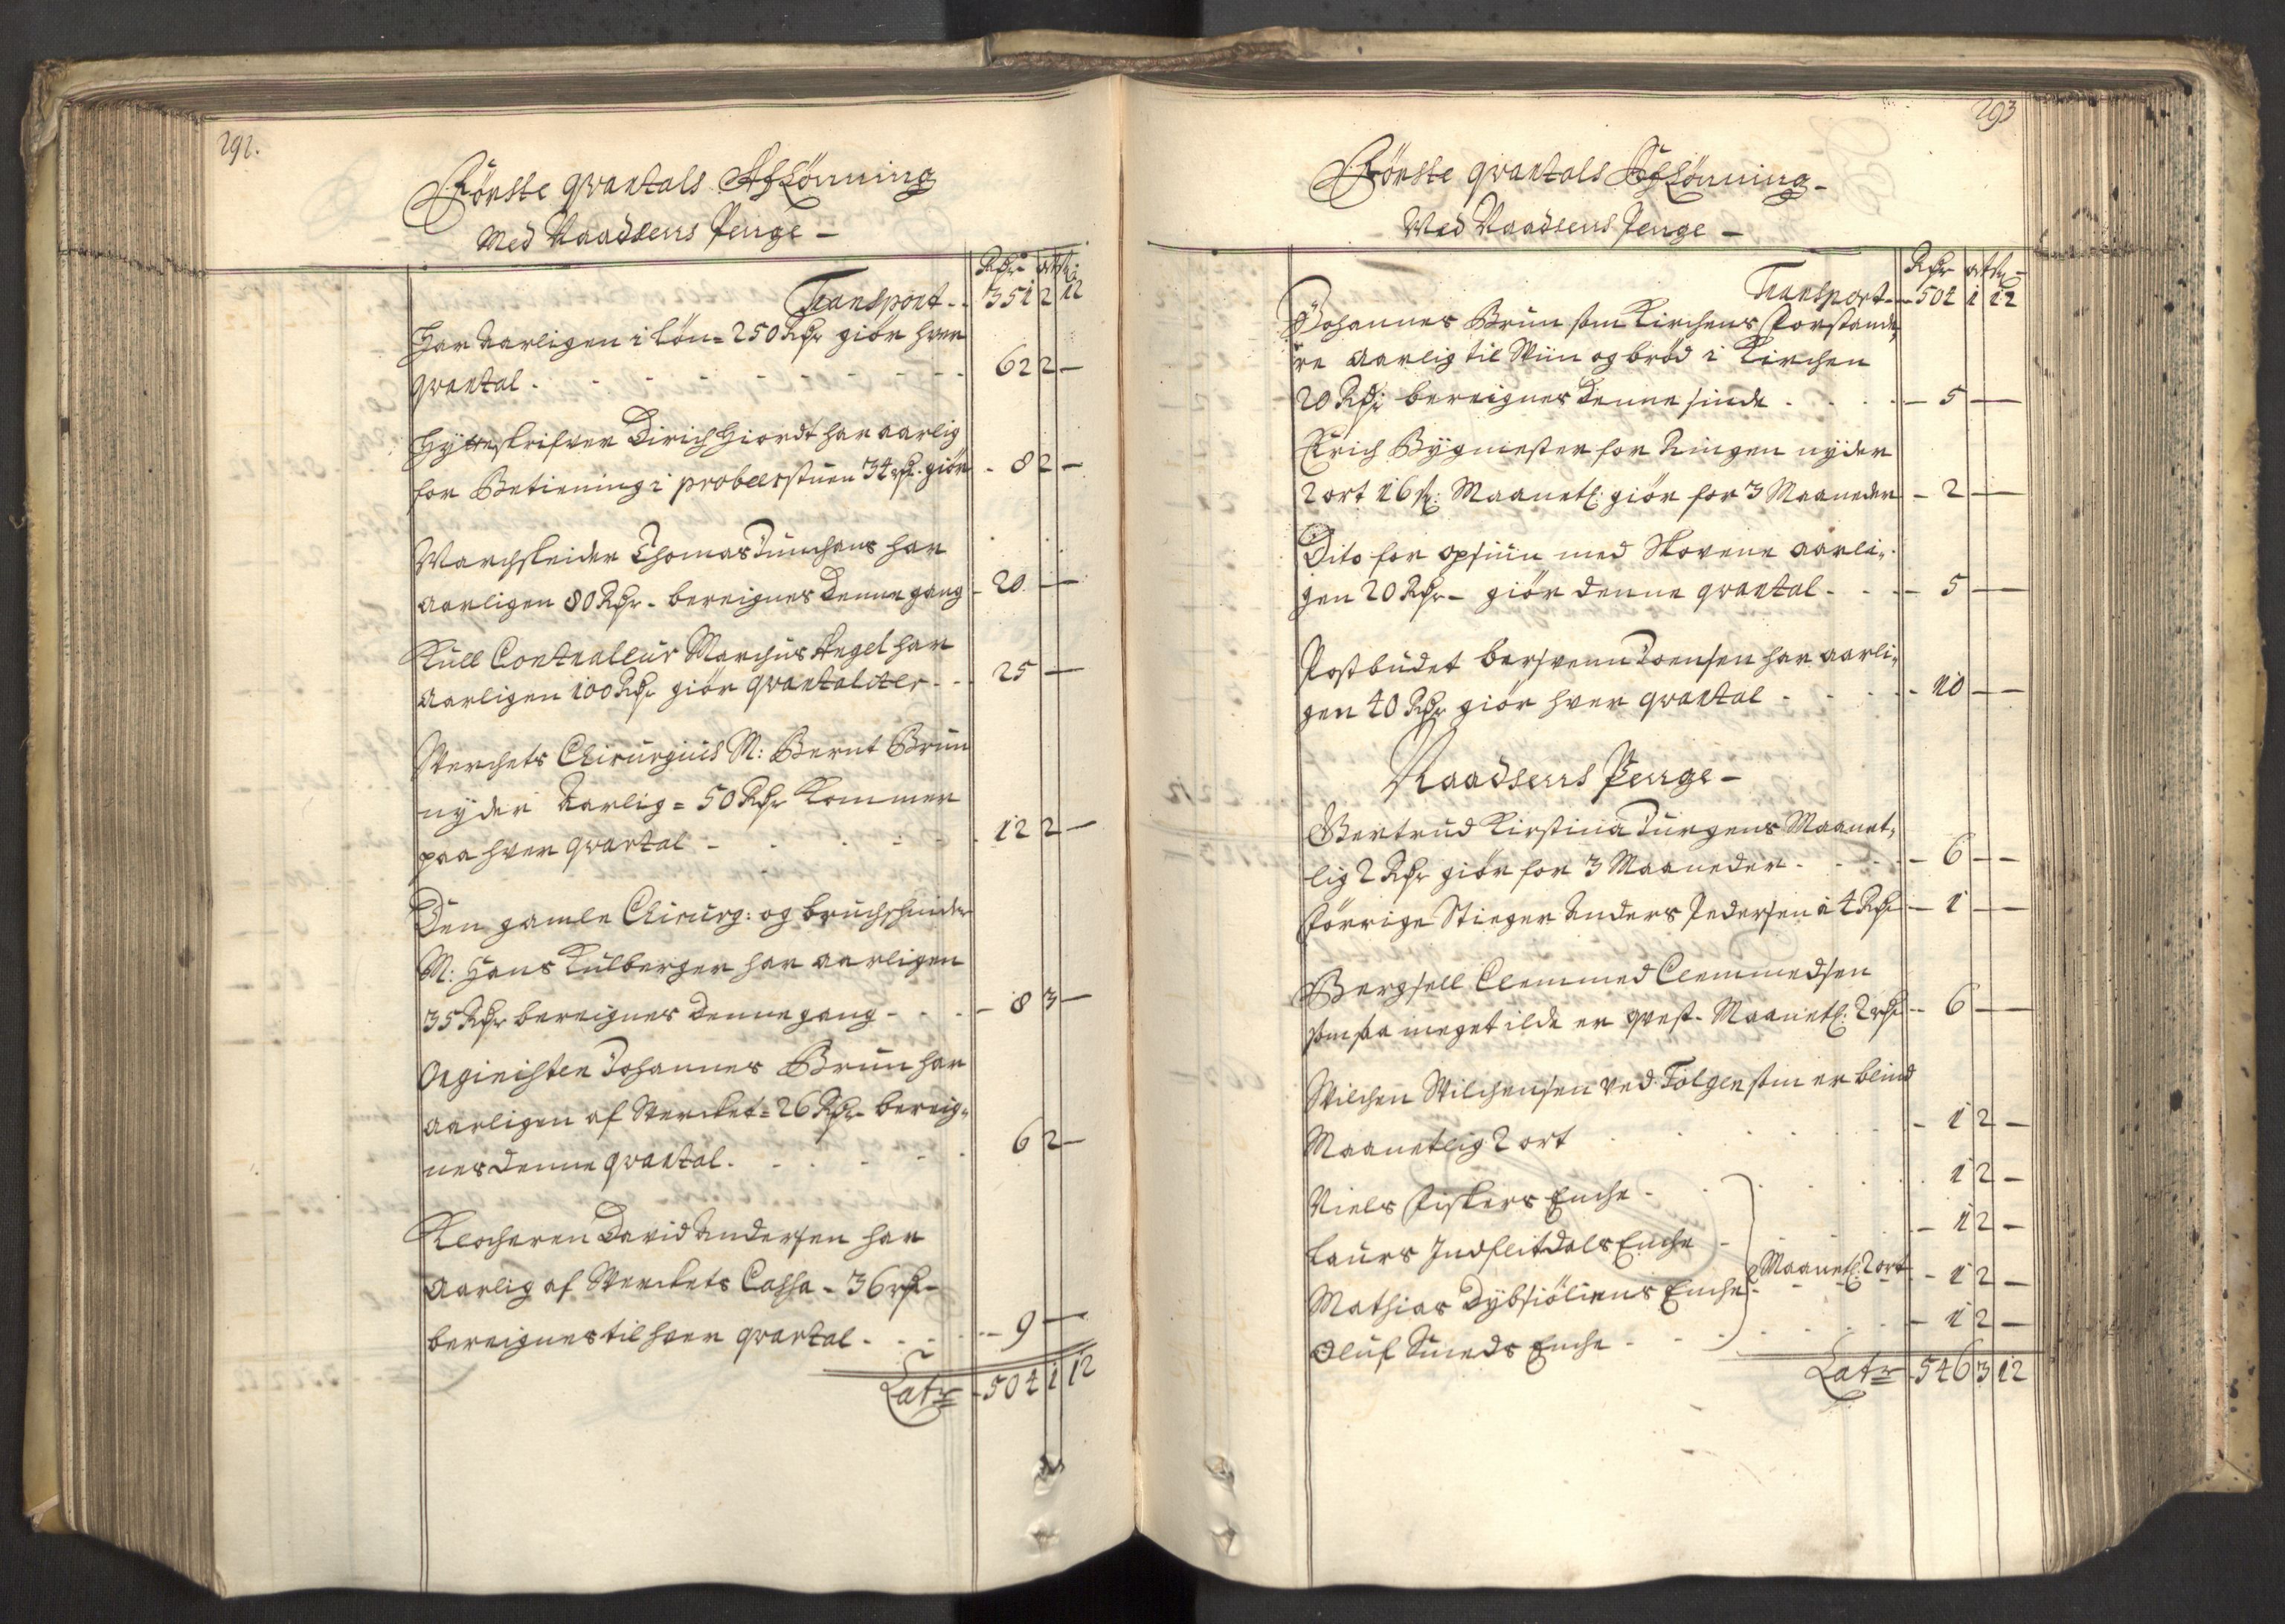 292.
Förste qvartals Aflönning
Med Naadsens Penge -
Rdr ort s:
Transport - 351 2 12
Har Aarligen i Lön = 250 Rdr giör hver
qvartal - 62 2 -
Hÿtteskrifver Dirich Hiordt har aarlig
for Betiening i probeerstuen 34 rdr giör - 8 2 -
Marchskeider Thomas Junghans har
Aarligen 80 Rdr - bereignes denne gang - 20 -
Kull Contralleur Marchus Angel har
Aarligen 100 Rdr giör qvartaliter - 25 -
Werchets Chirurgius M: Bernt Brun
nÿder Aarlig = 50 Rdr kommer
paa hver qvartal - 12 2 -
Den gamle Chirurg: og bruchsnider
M: Hans Kulberger har aarligen
35 Rdr bereignes denne gang - 8 3 -
Orginisten Johannes Brun har
aarligen af Wercket = 26 Rdr bereig-
nes denne qvartal - 6 2 -
Klocheren David Andersen har
Aarlig af Werckets Cassa - 36 rdr -
bereignes til hver qvartal - 9 -
Lat: - 504 1 12
293
Förste qvartals Aflönning -
Med Naadsens Penge -
Rdr ort s -
Transport - 504 1 12
Johannes Brun som Kirchens Forstande,
re aarlig til Wiin og bröd i Kirchen
20 Rdr bereignes denne sinde - 5 -
Erich Bÿgmester for Ringen nÿder
2 ort 16 s: Maanetl: giör for 3 Maaneder - 2 -
Dito for opsiun med Skovene aarli,,
gen 20 Rdr - giör denne qvartal - 5 -
Postbudet Berswenn Joensen har aarli,
gen 40 Rdr giör hver qvartal - 10 -
Naadsens Penge -
Gertrud Kirstina Jurgens Maanet,
lig 2 Rdr giör for 3 Maaneder - 6 -
Förrige Stieger Anders Pedersen à 4 Rdr - 1 -
Bergsell Clemmed Clemmedsen
som saa meget ilde er qvest - Maanetl: 2 rdr - 6 -
Wilchen Wilchensen ved Folgen som er blind
Maanetlig 2 ort - 1 2 -
Niels Fiskers Enche - 1 2 -
Laurs Indsletdals Enche - 1 2 -
Mathias Dÿbsiöliens Enche - Maanetl: 2 ort - 1 2 -
Oluf Smeds Enche - 1 2 -
Lat: - 546 3 12